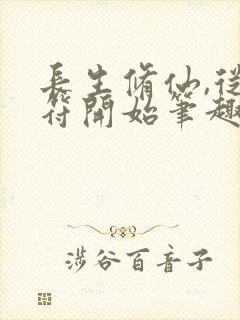 長生脩仙,從
符開始筆趣
涉谷百音子